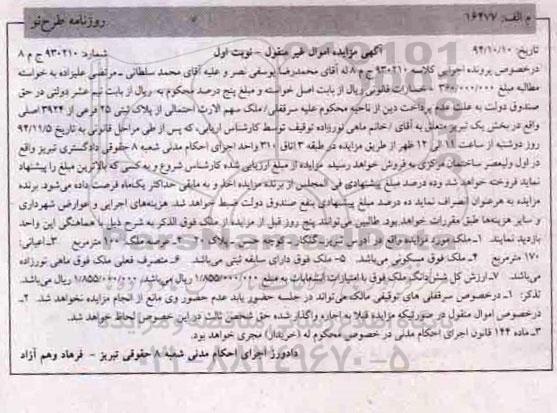 م الف: ۱۶۴۷۷
روزنامه طرح نو
تاریخ: ۹۴/۱۰/۱۰ آگهی مزایده اموال غیر منقول - نوبت اول شماره: ۹۳۰۲۱۰ ج م ۸
درخصوص پرونده اجرایی کلاسه ۹۳۰۲۱۰ ج م ۸ له آقای محمدرضا یوسفی نصر و علیه آقای محمد سلطانی - مرتضی علیزاده به خواسته
مطالبه مبلغ ۳۶۰/۰۰۰/۰۰۰ - خسارات قانونی ریال از بابت اصل خواسته و مبلغ پنج درصد محکوم به ریال از بابت نیم عشر دولتی در حق
صندوق دولت به علت عدم پرداخت دین از ناحیه محکوم علیه سرقفلی/ملک سهم الارث احتمالی از پلاک ثبتی ۲۵ فرعی از ۳۹۲۴ اصلی
واقع در بخش یک تبریز متعلق به آقای/خانم ماهی نورزاده توقیف توسط کارشناس ارزیابی، که پس از طی مراحل قانونی به تاریخ ۹۴/۱۱/۵
روز دوشنبه از ساعت ۱۱ الی ۱۲ ظهر از طریق مزایده در طبقه ۳ اتاق ۳۱۰ واحد اجرای احکام مدنی شعبه ۸ حقوقی دادگستری تبریز واقع
در اول ولیعصر ساختمان مرکزی به فروش خواهد رسید. مزایده از مبلغ ارزیابی شده کارشناس شروع و به کسی که بالاترین مبلغ را پیشنهاد
نماید فروخته خواهد شد و ده درصد مبلغ پیشنهادی فی المجلس از برنده مزایده اخذ و به مابقی حداکثر یک‌ماه فرصت داده می‌شود. برنده
مزایده به هر عنوان انصراف نماید ده درصد مبلغ پیشنهادی بنفع صندوق دولت ضبط خواهد شد. هزینه‌های اجرایی و عوارض شهرداری
و سایر هزینه‌ها طبق مقررات خواهد بود. طالبین می‌توانند پنج روز قبل از مزایده از ملک فوق الذکر به شرح ذیل با هماهنگی این واحد
بازدید نمایند. ۱- ملک مورد مزایده واقع در آدرس تبریز - گلکار - کوچه حسن - پلاک ۲۰ ۲- عرصه ملک ۱۰۰ مترمربع ۳- اعیانی:
۱۷۰ مترمربع ۴- ملک فوق مسکونی می‌باشد. ۵- ملک فوق دارای سابقه ثبتی می‌باشد. ۶- متصرف فعلی ملک فوق ماهی نورزاده
می‌باشد. ۷- ارزش کل شش‌دانگ ملک فوق با امتیازات انشعابات به مبلغ ۱/۸۵۵/۰۰۰/۰۰۰ ریال می‌باشد/ ۱/۸۵۵/۰۰۰/۰۰۰ ریال می‌باشد.
تذکر: ۱- درخصوص سرقفلی های توقیفی مالک می‌تواند در جلسه حضور یابد عدم حضور وی مانع از انجام مزایده نخواهد شد. ۲-
درخصوص اموال منقول در صورتیکه مزایده قبلا به اجاره واگذار شده حق شخص ثالث در این خصوص لحاظ خواهد شد.
۳- ماده ۱۴۴ قانون اجرای احکام مدنی در خصوص محکوم له (خریدار) مجری خواهد بود.
دادورز اجرای احکام مدنی شعبه ۸ حقوقی تبریز - فرهاد وهم آزاد
۰۲۱-۸۸۳۴۹۶۷۰-۵